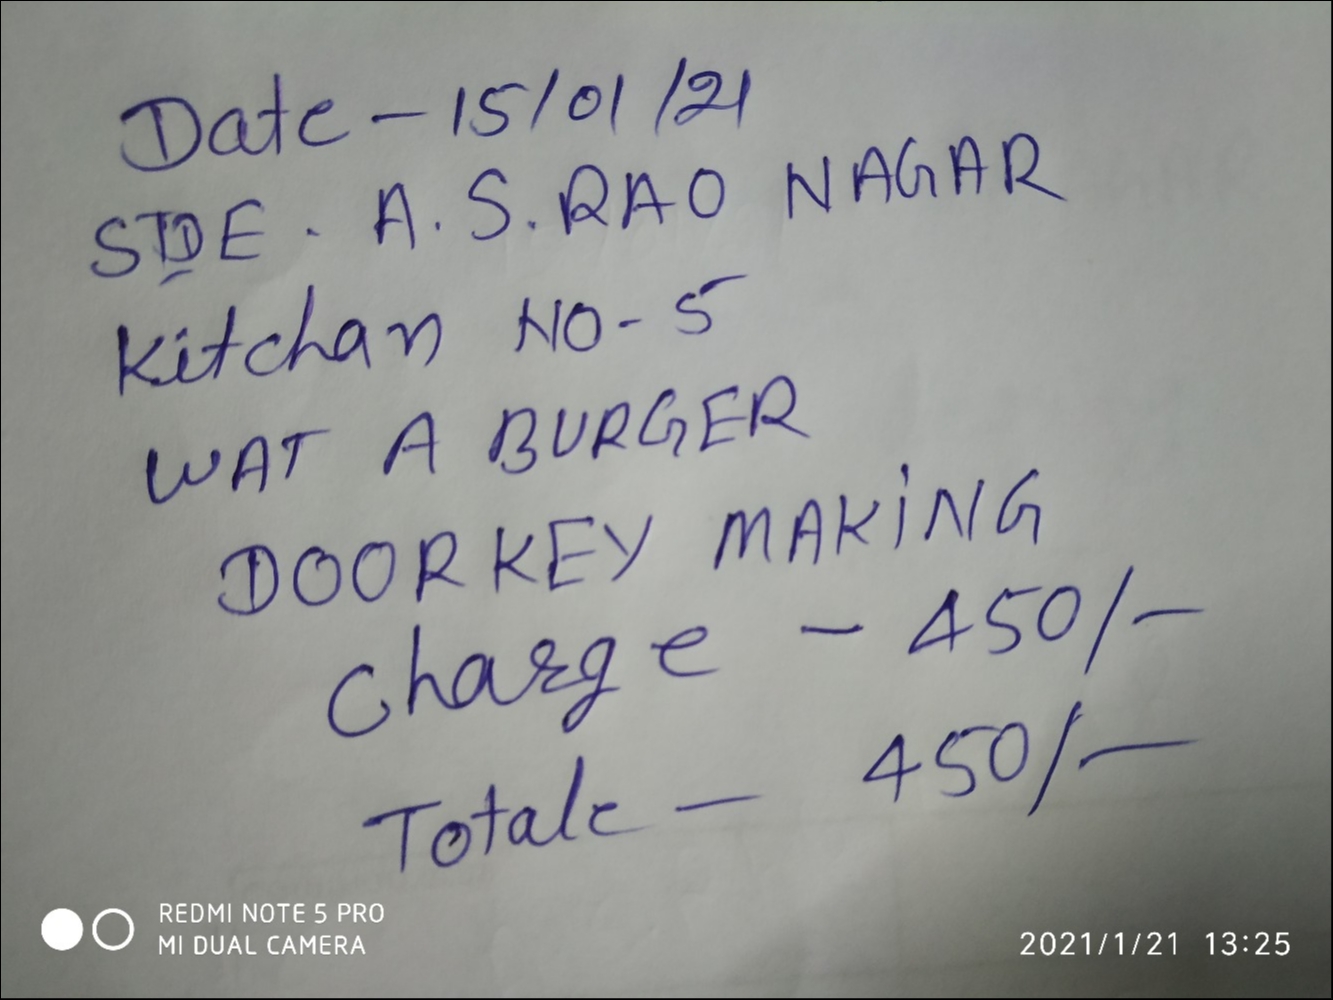 Date - 15/01/21
SIDE. A.S. RAO NAGAR
Kitchan NO-5
WAT A BURGER
DOOR KEY MAKING
charge - 450/-
Totale - 450/-
REDMI NOTE 5 PRO
MI DUAL CAMERA
2021/1/21 13:25